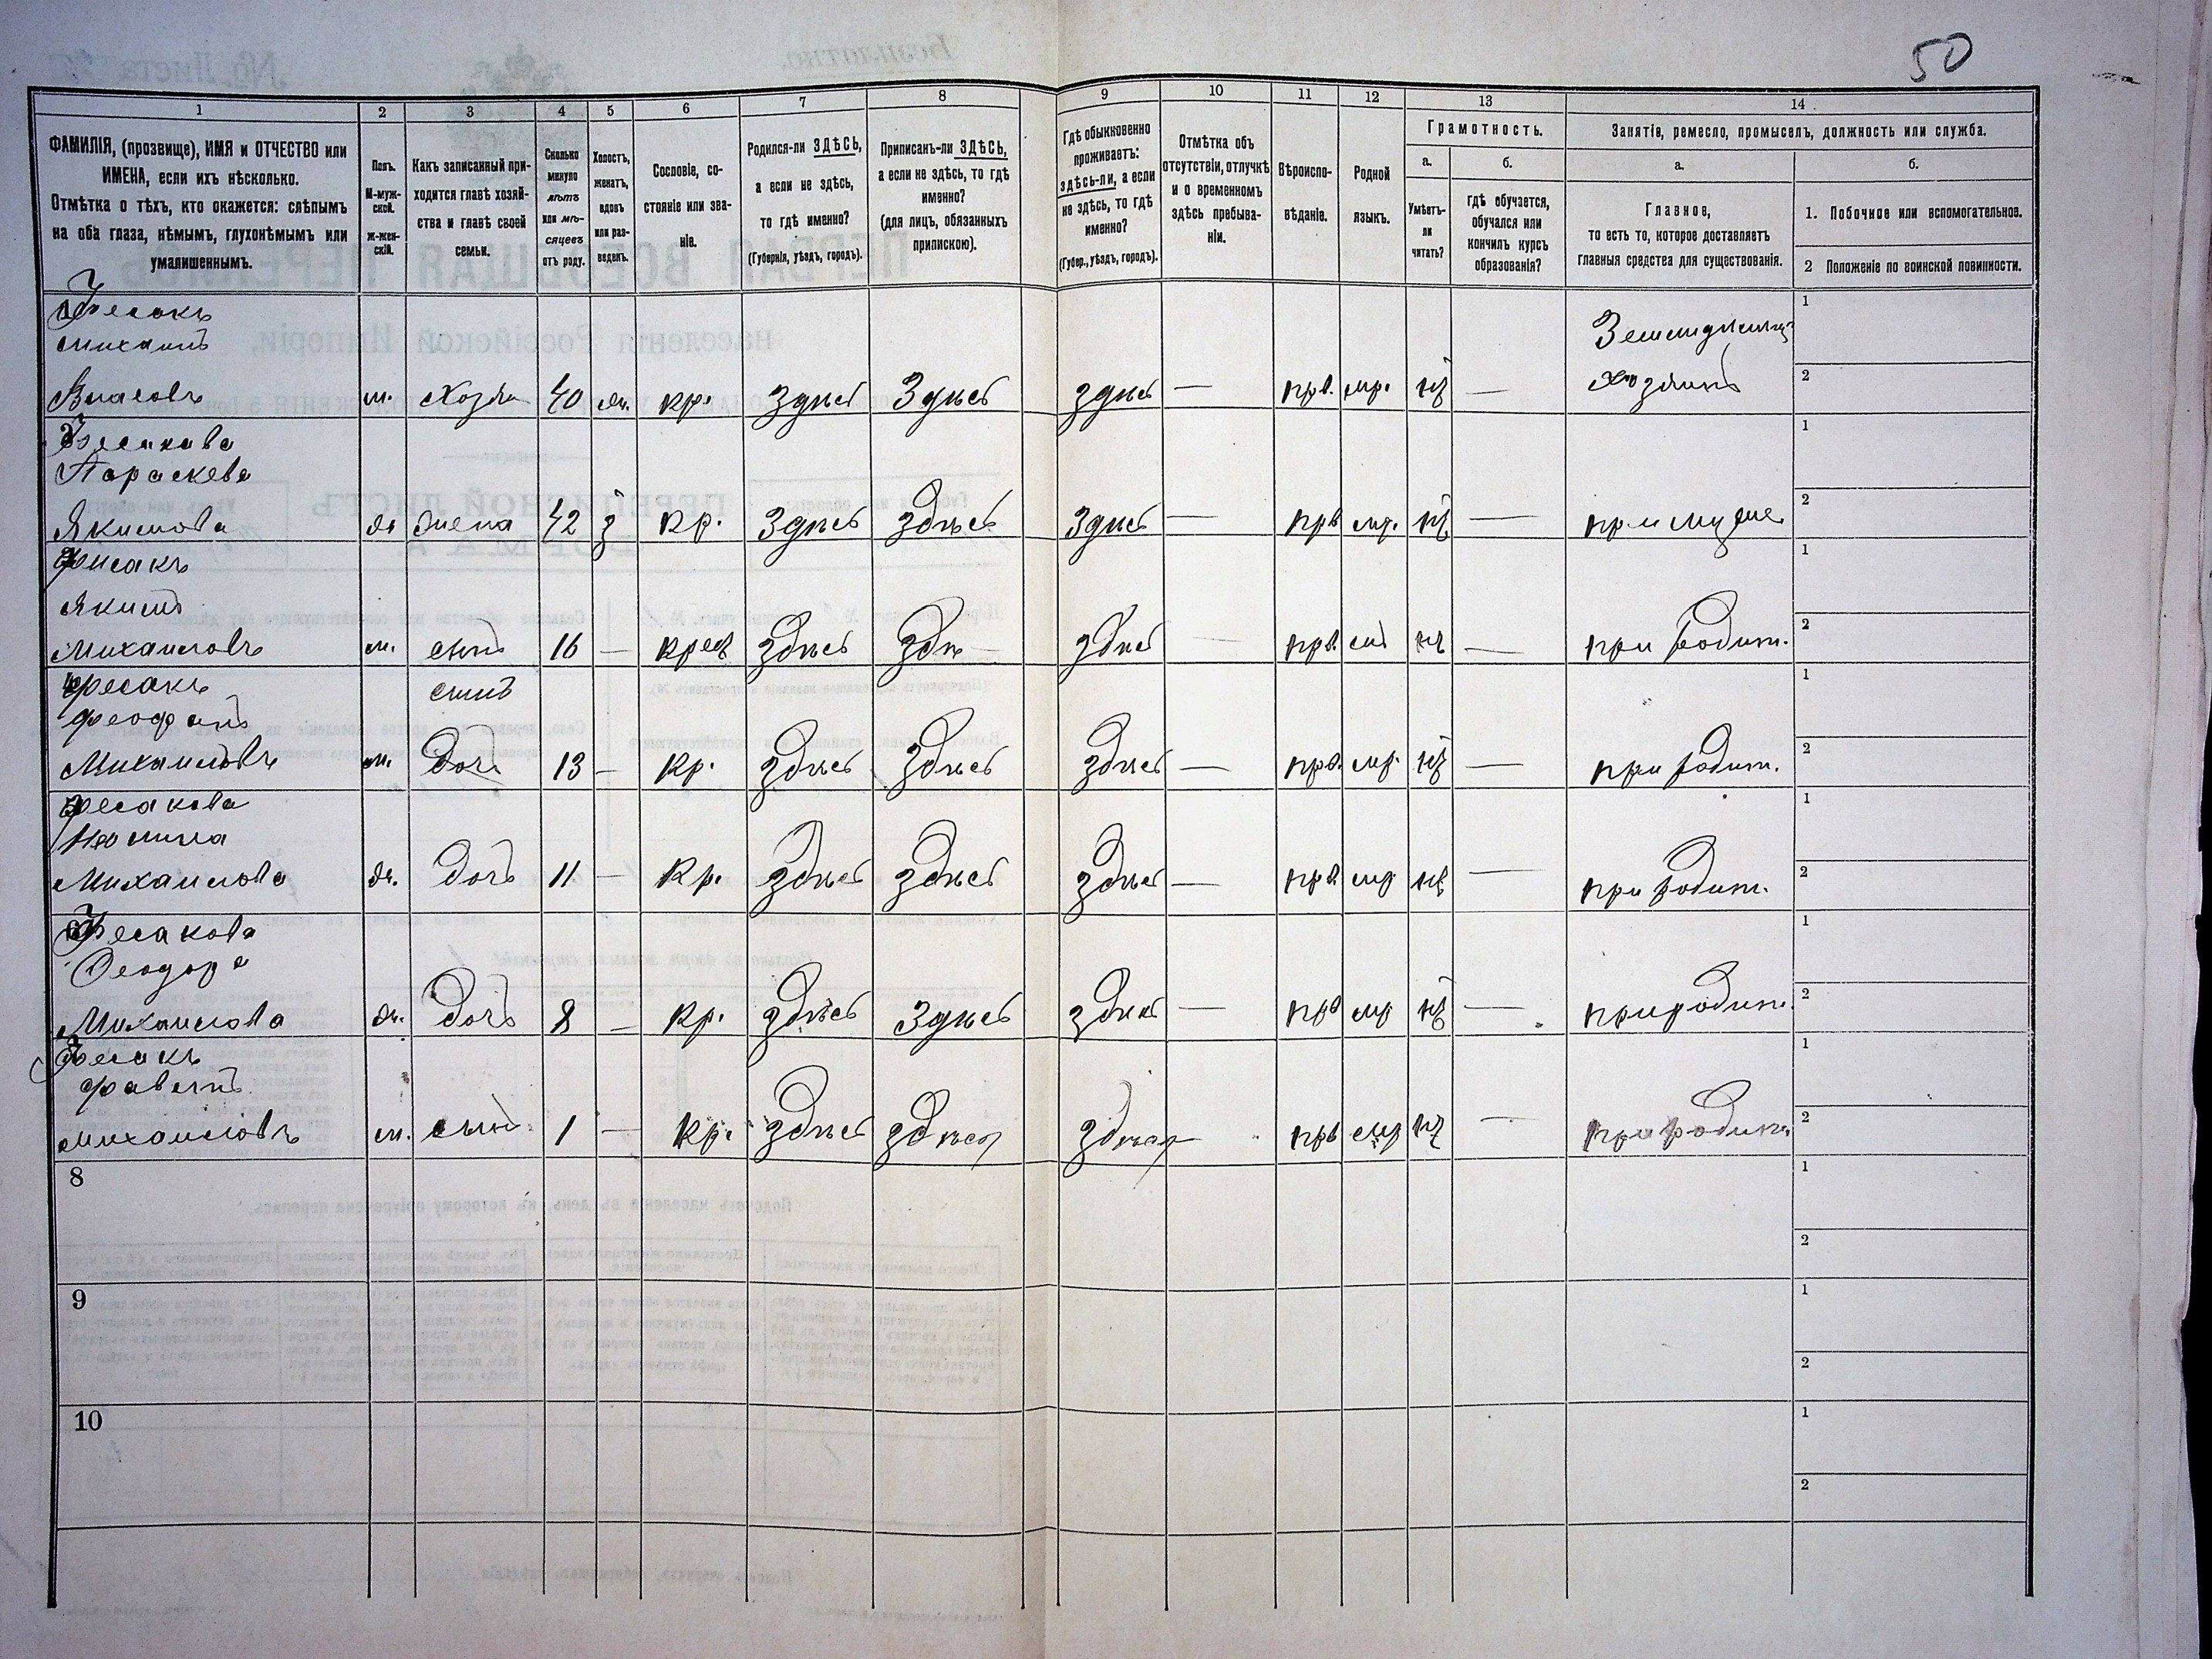 50
1 2 3 4 5 6 7 8 9 10 11 12 13 14
ФАМИЛІЯ, (прозвище), ИМЯ и ОТЧЕСТВО или ИМЕНА, если ихъ нѣсколько.
Отмѣтка о тѣхъ, кто окажется: слѣпымъ на оба глаза, нѣмымъ, глухонѣмымъ или умалишеннымъ.
Полъ. М-мужской. Ж-женскій.
Какъ записанный приходится главѣ хозяйства и главѣ своей семьи.
Сколько минуло лѣтъ или мѣсяцевъ отъ роду.
Холостъ, женатъ, вдовъ или разведенъ.
Сословіе, состояніе или званіе.
Родился-ли ЗДѢСЬ, а если не здѣсь, то гдѣ именно?
(Губернія, уѣздъ, городъ).
Приписанъ-ли ЗДѢСЬ, а если не здѣсь, то гдѣ именно?
(для лицъ, обязанныхъ припискою).
Гдѣ обыкновенно проживаетъ: здѣсь-ли, а если не здѣсь, то гдѣ именно?
(Губер., уѣздъ, городъ).
Отмѣтка объ отсутствіи, отлучкѣ и о временномъ здѣсь пребываніи.
Вѣроисповѣданіе.
Родной языкъ.
Грамотность.
а. б.
Умѣетъ-ли читать?
гдѣ обучается, обучался или кончилъ курсъ образованія?
Занятіе, ремесло, промыселъ, должность или служба.
а. б.
Главное,
то есть то, которое доставляетъ главныя средства для существованія.
1. Побочное или вспомогательное.
2 Положеніе по воинской повинности.
Фесакъ
Михаилъ
Власовъ м. Хозяи 40 жн. кр. Здѣсь Здѣсь здѣсь — прв. мр. нѣ — Земледѣлецъ хозяинъ 1 2
Фесакова
Параскева
Якимова ж жена 42 з кр. Здѣсь здѣсь Здѣсь — прв мр. нѣ — при мужѣ 1 2
Фесакъ
Якимъ
Михаиловъ м. сынъ 16 — крес здѣсь здѣ — здѣсь — прв нѣ — при родит. 1 2
Фесакъ
Феофанъ
Михаиловъ м. сынъ дочь 13 — кр. здѣсь здѣсь здѣсь — прв. мр. нѣ — при родит. 1 2
Фесакова
Михаилова ж. дочь 11 — кр. здѣсь здѣсь здѣсь — прв мр нѣ — при родит. 1 2
Фесакова
Феодора
Михаилова ж. дочь 8 — кр. здѣсь Здѣсь здѣсь — прв мр нѣ — при родит. 1 2
Фесакъ
Михаиловъ м. сынъ 1 — кр. здѣсь здѣсь здѣсь — прв мр нѣ — при родит. 1 2
8 1 2
9 1 2
10 1 2